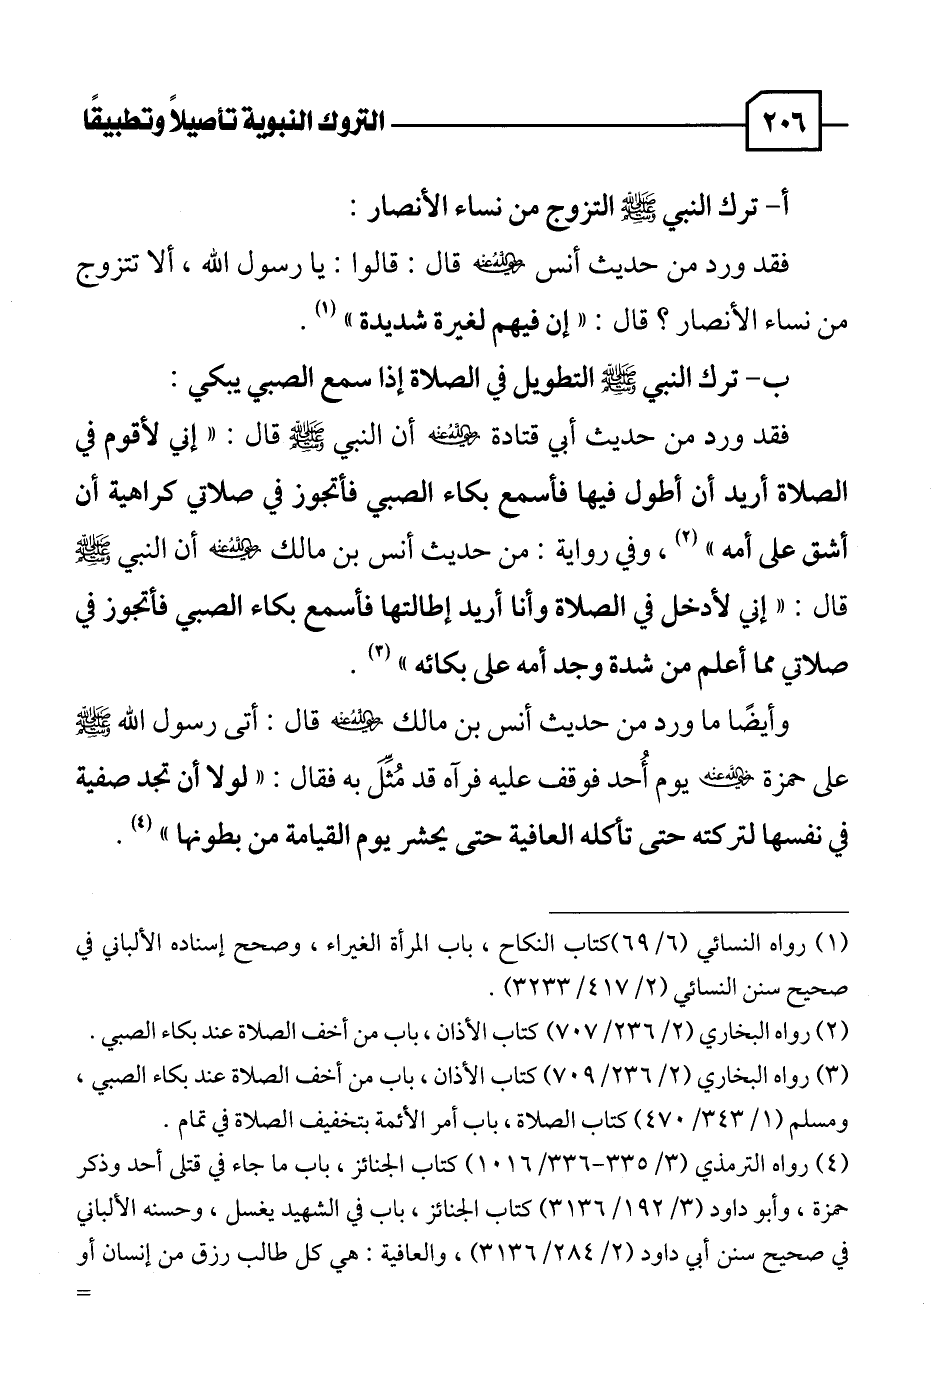 ٢٠٦ التروك النبوية تأصيلاً وتطبيقًا
أ- ترك النبي ﷺ التزوج من نساء الأنصار :
فقد ورد من حديث أنس رضي الله عنه قال : قالوا : يا رسول الله ، ألا تتزوج
من نساء الأنصار ؟ قال : « إن فيهم لغيرة شديدة » (١) .
ب- ترك النبي ﷺ التطويل في الصلاة إذا سمع الصبي يبكي :
فقد ورد من حديث أبي قتادة رضي الله عنه أن النبي ﷺ قال : « إني لأقوم في
الصلاة أريد أن أطول فيها فأسمع بكاء الصبي فأتجوز في صلاتي كراهية أن
أشق على أمه » (٢) ، وفي رواية : من حديث أنس بن مالك رضي الله عنه أن النبي ﷺ
قال : « إني لأدخل في الصلاة وأنا أريد إطالتها فأسمع بكاء الصبي فأتجوز في
صلاتي مما أعلم من شدة وجد أمه على بكائه » (٣) .
وأيضًا ما ورد من حديث أنس بن مالك رضي الله عنه قال : أتى رسول الله ﷺ
على حمزة رضي الله عنه يوم أُحد فوقف عليه فرآه قد مُثِّلَ به فقال : « لولا أن تجد صفية
في نفسها لتركته حتى تأكله العافية حتى يحشر يوم القيامة من بطونها » (٤) .
(١) رواه النسائي (٦/ ٦٩)كتاب النكاح ، باب المرأة الغيراء ، وصحح إسناده الألباني في
صحيح سنن النسائي (٢/ ٤١٧/ ٣٢٣٣) .
(٢) رواه البخاري (٢/ ٢٣٦/ ٧٠٧) كتاب الأذان ، باب من أخف الصلاة عند بكاء الصبي .
(٣) رواه البخاري (٢/ ٢٣٦/ ٧٠٩) كتاب الأذان ، باب من أخف الصلاة عند بكاء الصبي ،
ومسلم (١/ ٣٤٣/ ٤٧٠) كتاب الصلاة ، باب أمر الأئمة بتخفيف الصلاة في تمام .
(٤) رواه الترمذي (٣/ ٣٣٥-٣٣٦/ ١٠١٦) كتاب الجنائز ، باب ما جاء في قتلى أحد وذكر
حمزة ، وأبو داود (٣/ ١٩٢/ ٣١٣٦) كتاب الجنائز ، باب في الشهيد يغسل ، وحسنه الألباني
في صحيح سنن أبي داود (٢/ ٢٨٤/ ٣١٣٦) ، والعافية : هي كل طالب رزق من إنسان أو
=